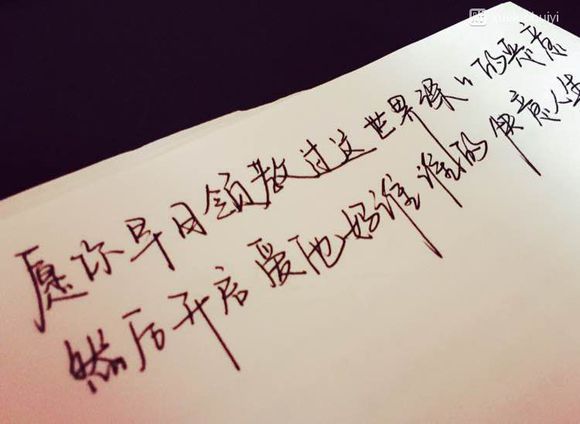 愿你早日领教过这世界深〃的恶意
然后开启爱他妈谁谁的快意人生